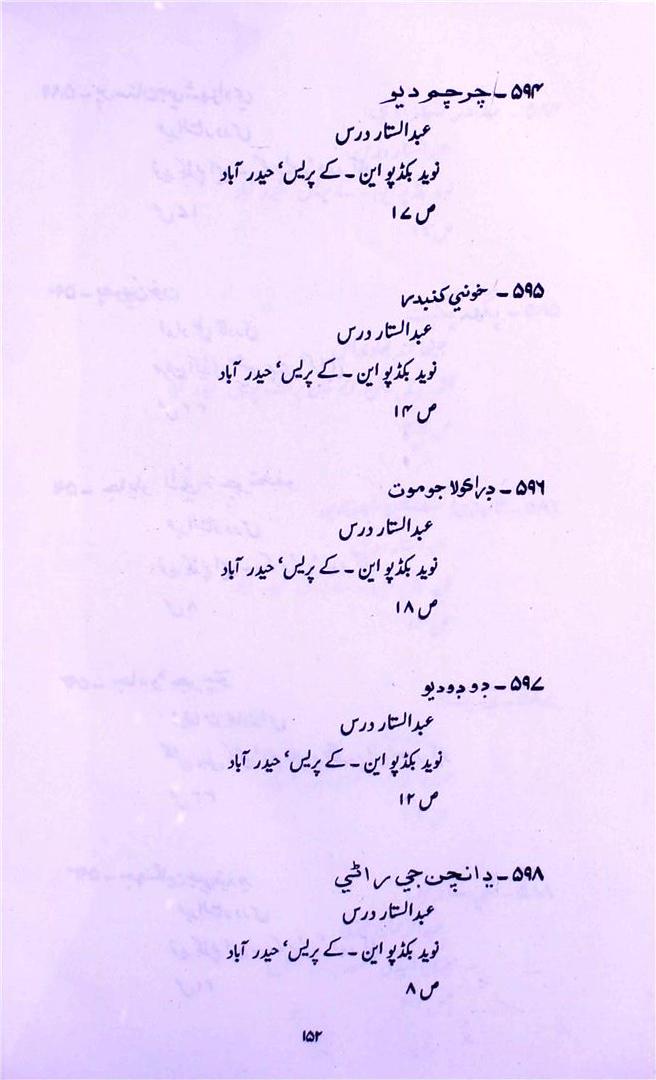 ۵۹۴ـ چرچر ديو
عبدالستار درس
نوید بکڈپو این ـ کے پریس، حیدر آباد
ص ۱۷
۵۹۵ ـ خوني کنبدر
عبدالستار درس
نوید بکڈپو این ـ کے پریس، حیدر آباد
ص ۱۴
۵۹۶ ـ ڊراڪولا جو موت
عبدالستار درس
نوید بکڈپو این ـ کے پریس، حیدر آباد
ص ۱۸
۵۹۷ ـ ديو
عبدالستار درس
نوید بکڈپو این ـ کے پریس، حیدر آباد
ص ۱۲
۵۹۸ ـ ڊانچن جي راڻي
عبدالستار درس
نوید بکڈپو این ـ کے پریس، حیدر آباد
ص ۸
۱۵۲